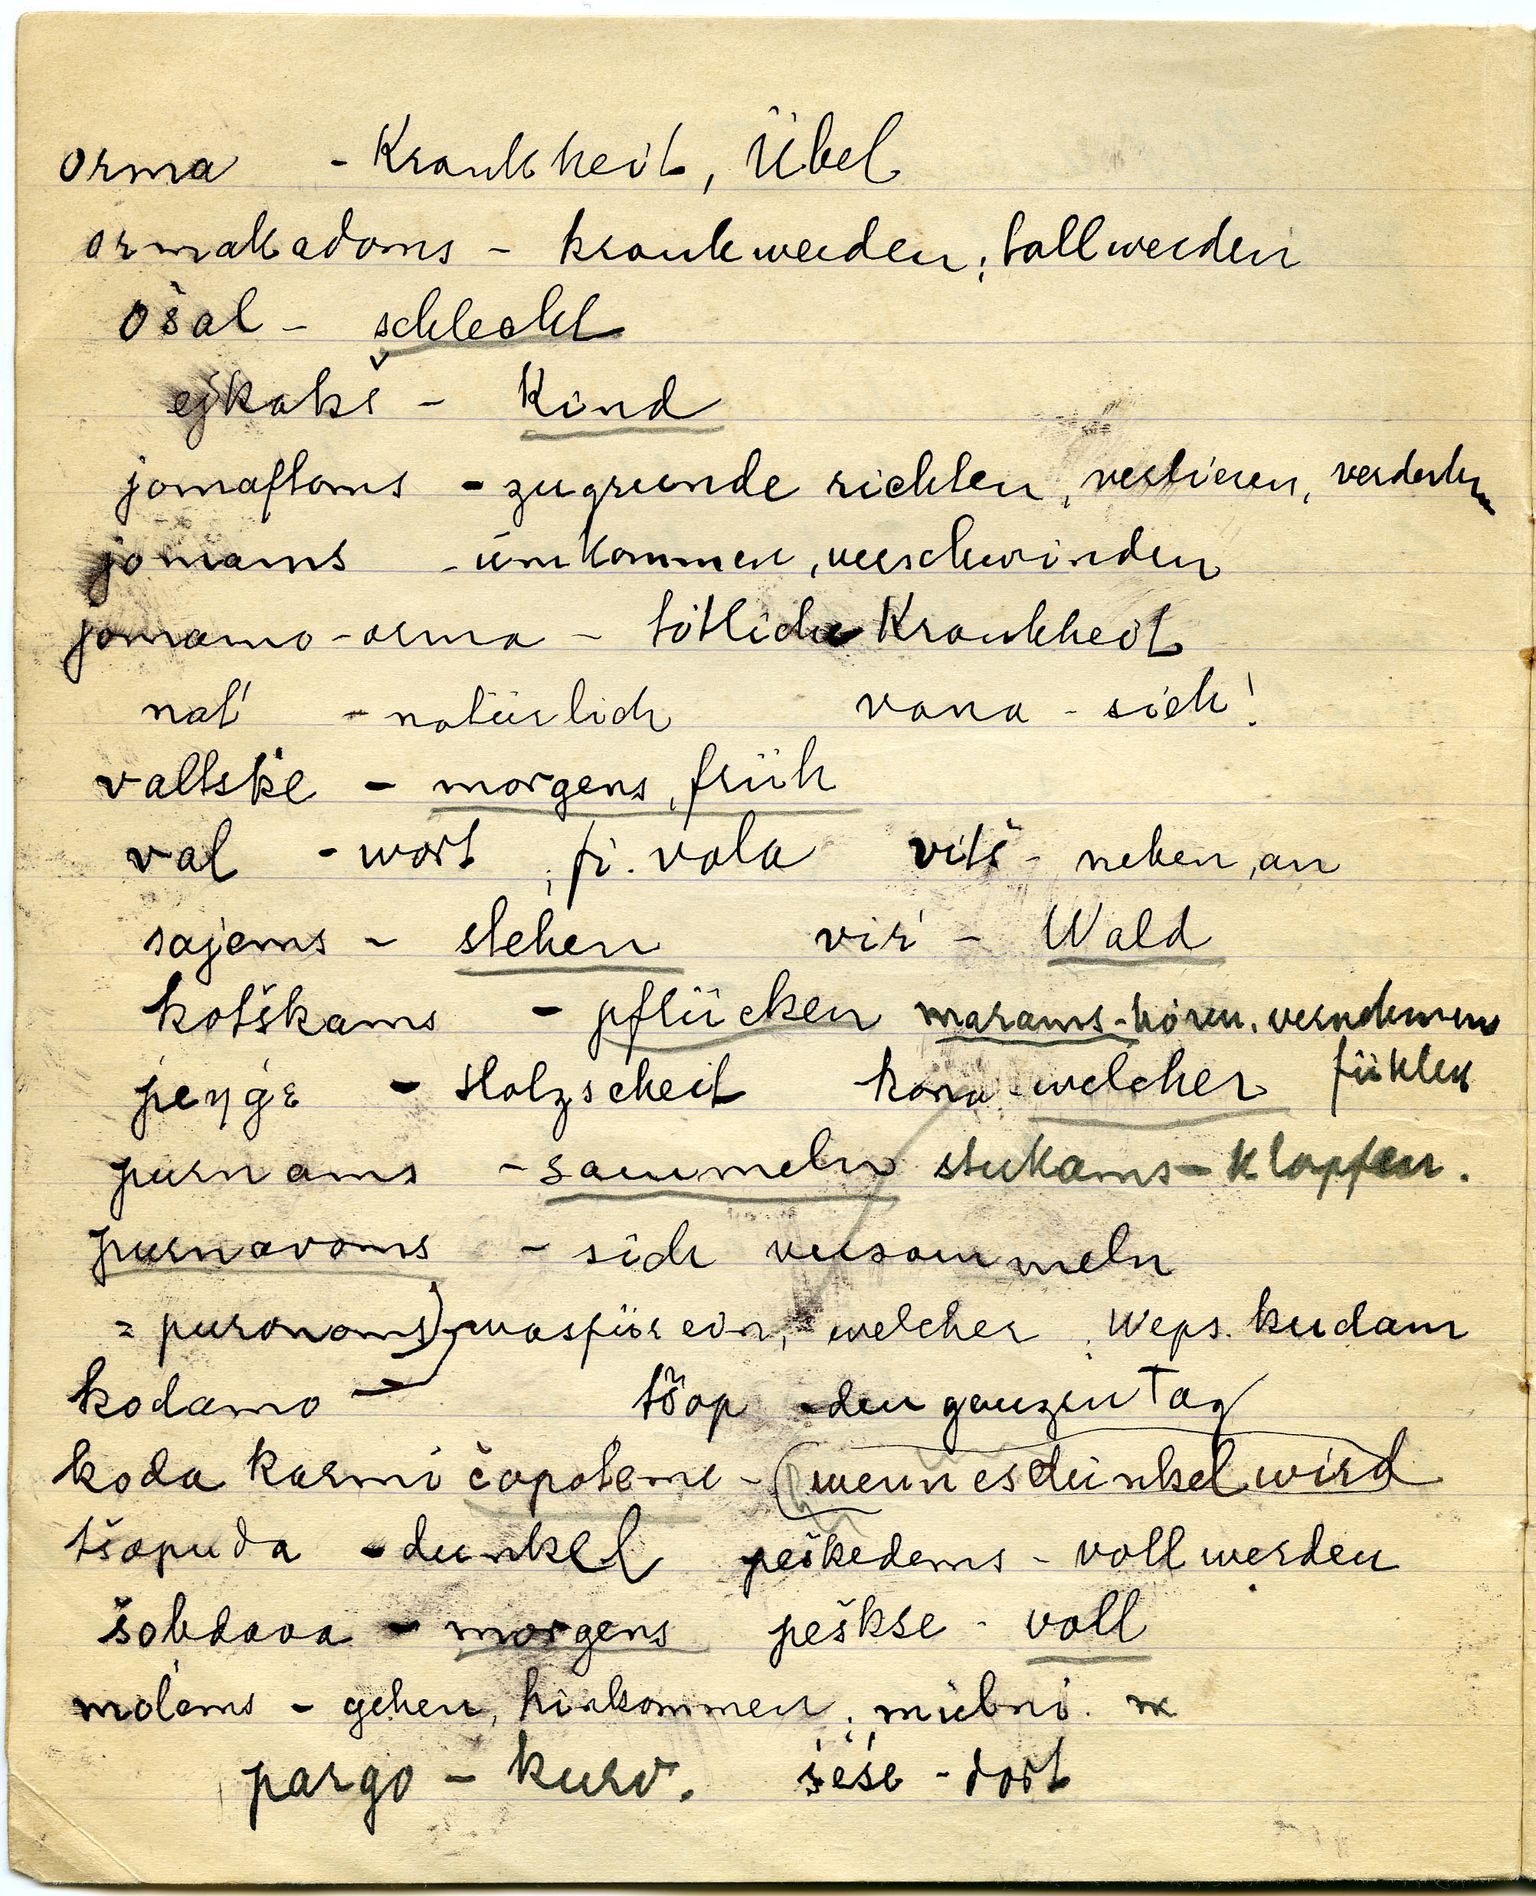 orma - Krankheit, Übel
ormakadoms - krank werden; toll werden
ošal - schlecht
ejkakš - Kind
jomaftoms - zugrunde richten, verlieren, verderben
jomams - umkommen, verschwinden
jomamo-orma - tötliche Krankheit
nat' - natürlich vana - sieh!
valtske - morgens, früh
val - wort; fi. vala vits - neben, an
sajems - stehen vir' - Wald
kotškams - pflücken marams - hören, vernehmen
peŋge - Holzscheit kona - welcher fühlen
purnams - sammeln stukams - klopfen.
purnavoms - sich versammeln
= puronoms) was für ein, welcher, weps. kudam
kodamo tšop - den ganzen Tag
koda karmi čopoteme - (wenn es dunkel wird
tšopuda - dunkel peškedems - voll werden
šobdava - morgens peškse - voll
mol'ems - gehen, hinkommen;
pargo - kurv. śeśe - dort